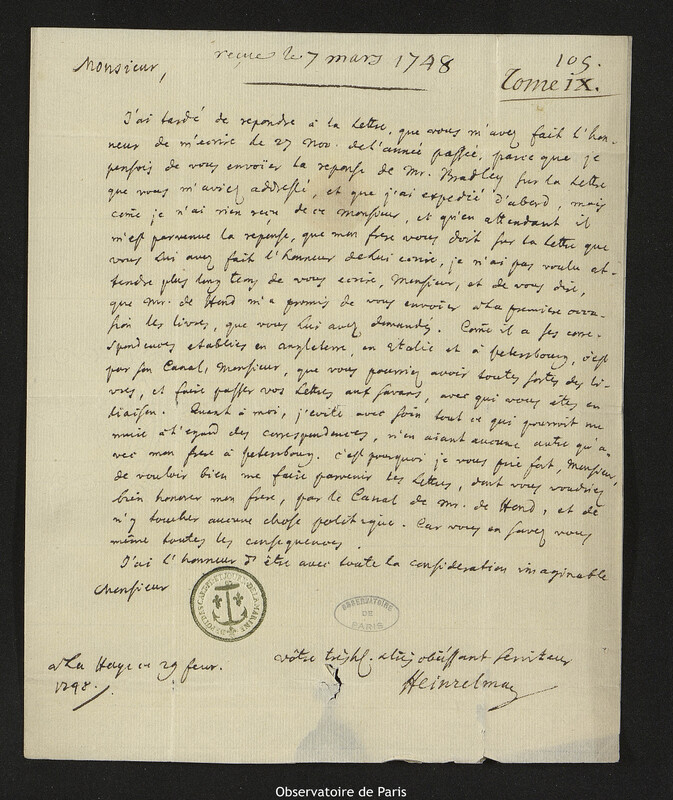 reçue le 7 mars 1748
109.
Tome IX.
Monsieur,
J'ai tardé de repondre à la Lettre, que vous m'avez fait l'hon-
neur de m'ecrire le 27 Nov. de l'année passée, parce que je
pensois de vous envoïer la reponse de Mr. Bradley sur la Lettre
que vous m'aviez addressée, et que j'ai expedié d'abord, mais
come je n'ai rien reçu de ce Monsieur, et qu'en attendant il
m'est parvenue la reponse, que mon frere vous doit sur la Lettre que
vous lui avez fait l'honneur de lui ecrire, je n'ai pas voulu at-
tendre plus long tems de vous ecrire, Monsieur, et de vous dire,
que Mr. de Hond m'a promis de vous envoïer à la premiere occa-
sion les livres, que vous lui avez demandés. Come il a ses corre-
spondences etablies en angleterre, en Italie et à Petersbourg, c'est
par son Canal, Monsieur, que vous pourriez avoir toutes sortes des li-
vres, et faire passer vos Lettres aux savans, avec qui vous êtes en
liaison. Quant à moi, j'evite avec soin tout ce qui pourroit me
nuire à l'egard des correspondences, n'en aiant aucune autre qu'a-
vec mon frere à Petersbourg. c'est pourquoi je vous prie fort, Monsieur,
de vouloir bien me faire parvenir les Lettres, dont vous voudriez
bien honorer mon frere, par le Canal de Mr. de Hond, et de
n'y toucher aucune chose politique. Car vous en savez vous
même toutes les consequences.
J'ai l'honneur d'être avec toute la consideration imaginable
Monsieur
OBSERVATOIRE
DE
PARIS
à La Haye ce 29 fevr.
1748.
vôtre tresh. et très obeissant serviteur
Heinzelman
Observatoire de Paris